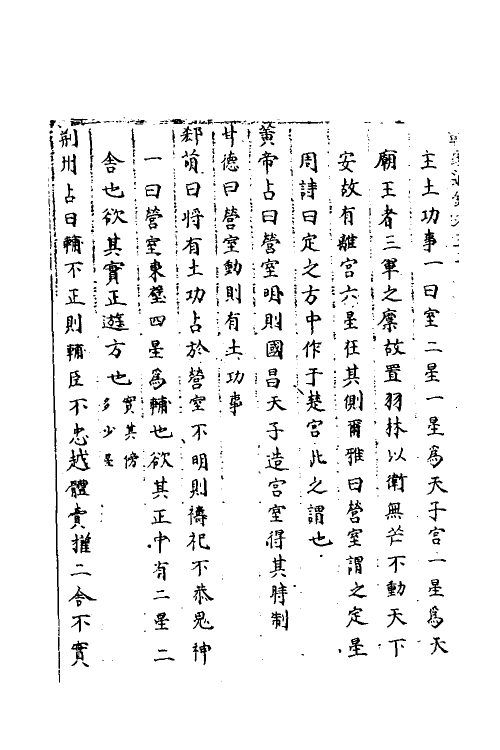 主土功事一曰室二星一星爲天子宫一星爲天
廟王者三軍之廩故置羽林以衛無芒不動天下
安故有離宫六星在其側爾雅曰營室謂之定星
周詩曰定之方中作于楚宫此之謂也
黄帝占曰營室明則國昌天子造宫室得其時制
甘德曰營室動則有土功事
郄萌曰将有土功占於營室不明則禱祀不恭鬼神
一曰營室東壁四星爲輔也欲其正中有二星二
舍也欲其實正遊方也實其傍多少星
荆州占曰輔不正則輔臣不忠越體責摧二舍不實